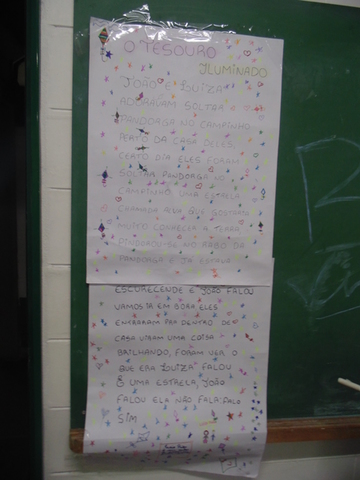 O TESOURO
ILUMINADO
JOÃO E LUIZA
ADORAVAM SOLTAR A
PANDORGA NO CAMPINHO
PERTO DA CASA DELES,
CERTO DIA ELES FORAM
SOLTAR PANDORGA NO
CAMPINHO UMA ESTRELA
CHAMADA QUE GOSTARIA
MUITO CONHECER A TERRA
PINDUROU-SE NO RABO DA
PANDORGA E JÁ ESTAVA
ESCURECENDE E JOÃO FALOU
VAMOS IR EM BORA ELES
ENTRARAM PRA DENTRO DE
CASA VIRAM UMA COISA
BRILHANDO, FORAM VER O
QUE ERA LUIZA FALOU
É UMA ESTRELA, JOÃO
FALOU ELA NÃO FALA: FALO
SIM